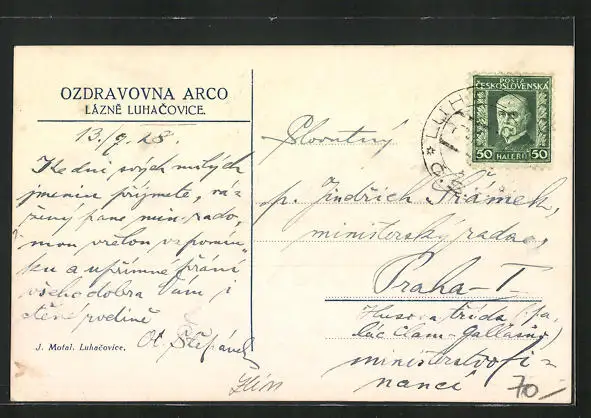 OZDRAVOVNA ARCO
LÁZNĚ LUHAČOVICE.
13./9. 28.
Ke dni svých milých
jmenin přijměte, vá-
žený pane
mou vřelou vzpomín-
ku a upřímné přání
všeho dobra Vám i
ctěné rodině
Ot. Štěpánek
J. Motal. Luhačovice.
POŠTA
ČESKOSLOVENSKÁ
50 HALÉŘŮ 50
LUH
Slovutný
p. Jindřich Srámek,
ministerský rada,
Praha-I
Husova třída (pa-
lác Clam-Gallasův)
ministerstvo fi-
nancí
70/-